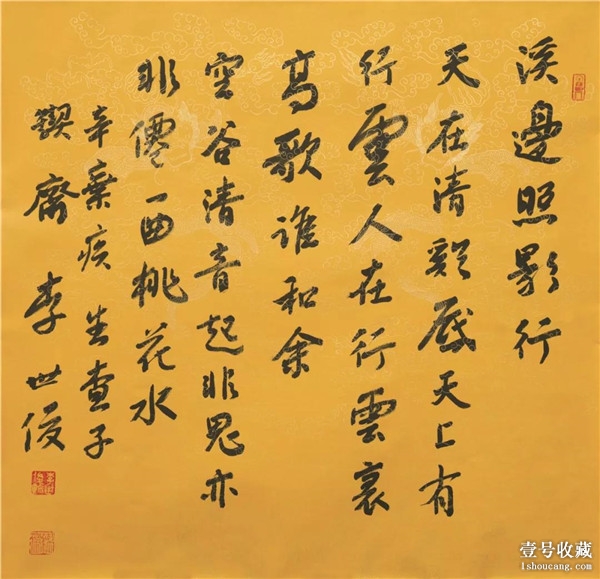 溪邊照影行
天在清谿底天上有
行雲人在行雲裏
高歌谁和余
空谷清音起非鬼亦
非僊一曲桃花水
辛棄疾生查子
鍥齋李世俊
壹号收藏
1shoucang.com